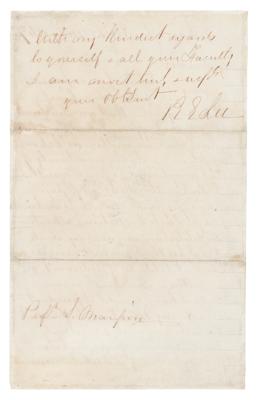 With my kindest regards
to yourself & all your Family
I am most truly & respy
your obt Servt
R E Lee
Profr S. Maupin